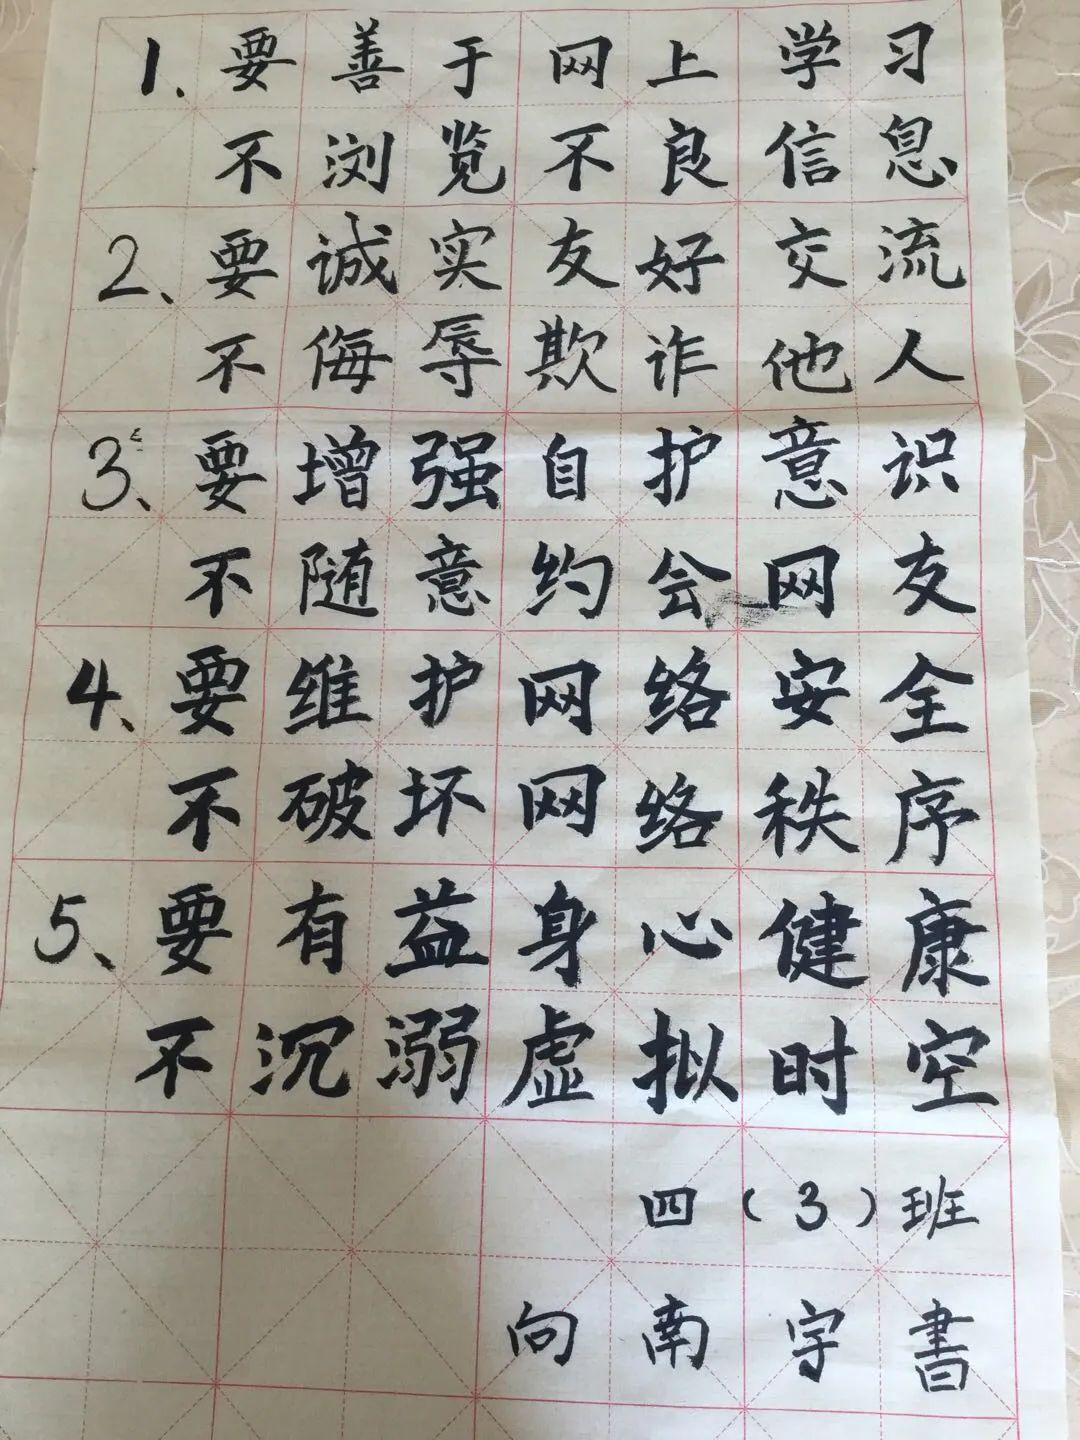 1、要善于网上学习
不浏览不良信息
2、要诚实友好交流
不侮辱欺诈他人
3、要增强自护意识
不随意约会网友
4、要维护网络安全
不破坏网络秩序
5、要有益身心健康
不沉溺虚拟时空
四(3)班
向南宇書